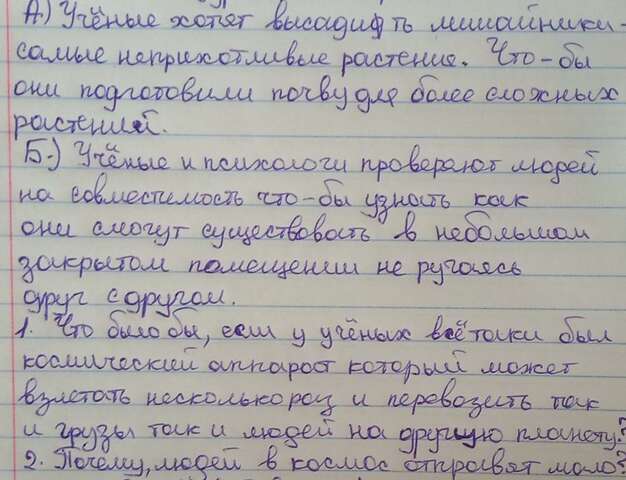 А.) Учёные хотят высадить лишайники-
самые неприхотливые растение. Что-бы
они подготовили почву для более сложных
растений.
Б.) Учёные и психологи проверяют людей
на совместимость что-бы узнать как
они смогут существовать в небольшом
закрытом помещении не ругаясь
друг с другом.
1. Что было бы, если у учёных всё таки был
космический аппарат который может
взлетать несколько раз и перевозить так
и грузы так и людей на другую планету?
2. Почему, людей в космос отправят мало?